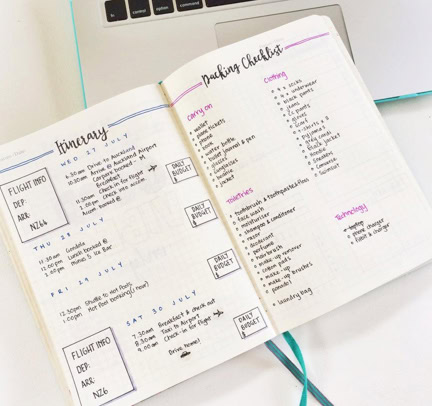 fn
control
option
command
Itinerary
WED 27 JULY
6.30am Drive to Auckland
10.30am Arrive @ Auckland Airport
Carpark booked - M
Breakfast
11.30am Check-in for flight
Check into accom
Room booked @
FLIGHT INFO
DEP:
ARR:
NZ6
DAILY
BUDGET
$
THU 28 JULY
11.30am Gondola
12.00pm Lunch booked @
1.00pm Minus 5 Ice Bar
DAILY
BUDGET
$
FRI 29 JULY
12.30pm Shuttle to Hot Pools
1.00pm Hot Pool booking (1 hour)
DAILY
BUDGET
$
SAT 30 JULY
7.30am Breakfast & check out
8.30am Taxi to Airport
9.00am Check-in for flight
Drive home!
FLIGHT INFO
DEP:
ARR:
NZ6
DAILY
BUDGET
$
Packing Checklist
Carry on
wallet
plane tickets
phone
book
water bottle
bullet journal & pen
glasses
sunglasses
beanie
jacket
Toiletries
toothbrush & toothpaste/floss
face wash
moisturiser
shampoo & conditioner
razor
deodorant
perfume
hairbrush
make-up remover
cotton pads
make-up
make-up brushes
powder
laundry bag
Clothing
4 x socks
4 x underwear
black pants
jeans
gloves
scarf
t-shirts x 3
pyjamas
grey cardi
black jacket
hoodie
sneakers
Converse
swimsuit
Technology
laptop
phone charger
fitbit & charger